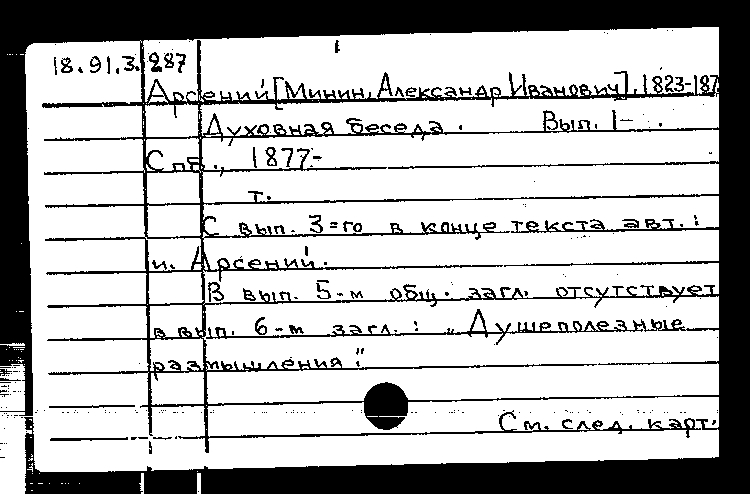 18.91.3.287
Арсений [Минин, Александр Иванович], 1823-187
Духовная беседа. Вып. 1- .
Спб., 1877-
т.
С вып. 3=го в конце текста авт.:
и. Арсений.
В вып. 5-м общ. загл. отсутствует
в вып. 6-м загл.: „Душеполезные
размышления".
См. след. карт.